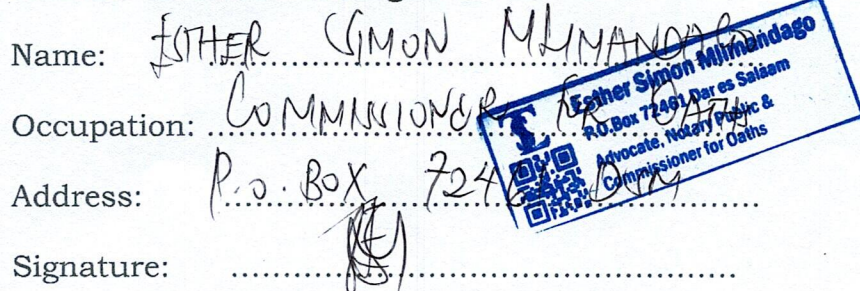 Name: ESTHER SIMON MLIMANDAGO
Occupation: COMMISSIONER FOR OATH
Address: P.O. BOX 72461 DSM
Signature:
Esther Simon Mlimandago
P.O.Box 72461 Dar es Salaam
Advocate, Notary Public &
Commissioner for Oaths